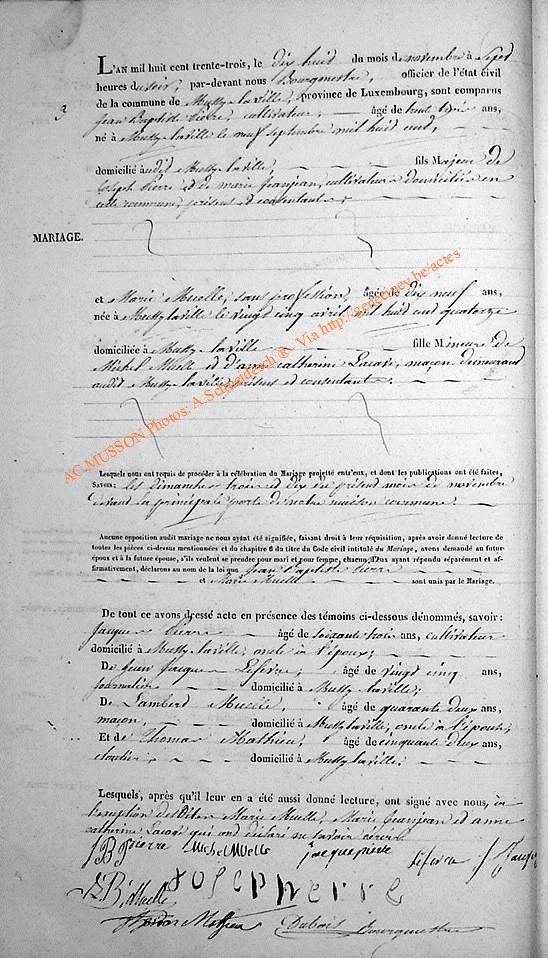 L'AN mil huit cent trente-trois, le dix huit du mois de novembre à sept
heures du soir, par-devant nous Bourgmestre, officier de l'état civil
de la commune de Mussy-laville, province de Luxembourg, sont comparus
3
Jean Baptiste Pierre, cultivateur, âgé de trente trois ans,
né à Mussy-laville le neuf septembre mil huit cent,
domicilié audit Mussy-laville, fils Majeur de
Joseph Pierre et de marie jeanjean, cultivateur domiciliés en
cette commune, présent et consentant.
MARIAGE.
et Marie Muelle, sans profession, âgée de dix neuf ans,
née à Mussy-laville le vingt cinq avril mil huit cent quatorze
domiciliée à Mussy-laville fille Mineure de
Michel Muelle et d'anne catherine Lacave, maçon demeurant
audit Mussy-laville, présent et consentant.
Lesquels nous ont requis de procéder à la célébration du Mariage projetté entr'eux, et dont les publications ont été faites,
SAVOIR: les Dimanches trois et dix du présent mois de novembre
devant la principale porte de notre maison commune.
Aucune opposition audit mariage ne nous ayant été signifiée, faisant droit à leur réquisition, après avoir donné lecture de
toutes les pièces ci-dessus mentionnées et du chapitre 6 du titre du Code civil intitulé du Mariage, avons demandé au futur
époux et à la future épouse, s'ils veulent se prendre pour mari et pour femme, chacun d'eux ayant répondu séparément et af-
firmativement, déclarons au nom de la loi que Jean Baptiste Pierre
et Marie Muelle sont unis par le Mariage.
De tout ce avons dressé acte en présence des témoins ci-dessous dénommés, savoir:
Jacques Pierre âgé de soixante trois ans, cultivateur
domicilié à Mussy-laville, oncle à l'époux;
De Jean Jacques Lefevre, âgé de vingt cinq ans,
journalier domicilié à Mussy-laville;
De Lambert Muelle, âgé de quarante deux ans,
maçon, domicilié à Mussy-laville, oncle à l'épouse;
Et de Thomas Mathieu, âgé de cinquante deux ans,
cloutier domicilié à Mussy-laville.
Lesquels, après qu'il leur en a été aussi donné lecture, ont signé avec nous, à
l'exception de Marie Muelle, Marie Jeanjean et anne
catherine Lacave qui ont déclaré ne savoir écrire
JBPierre Michel Muelle jacque piere Lefevre J Jacq
Muelle Joseph Pierre
Thomas Mathieu Dubois Bourgmestre
AC MUSSON Photos: A.Schneidesch ®- Via http://geneciney.be/actes